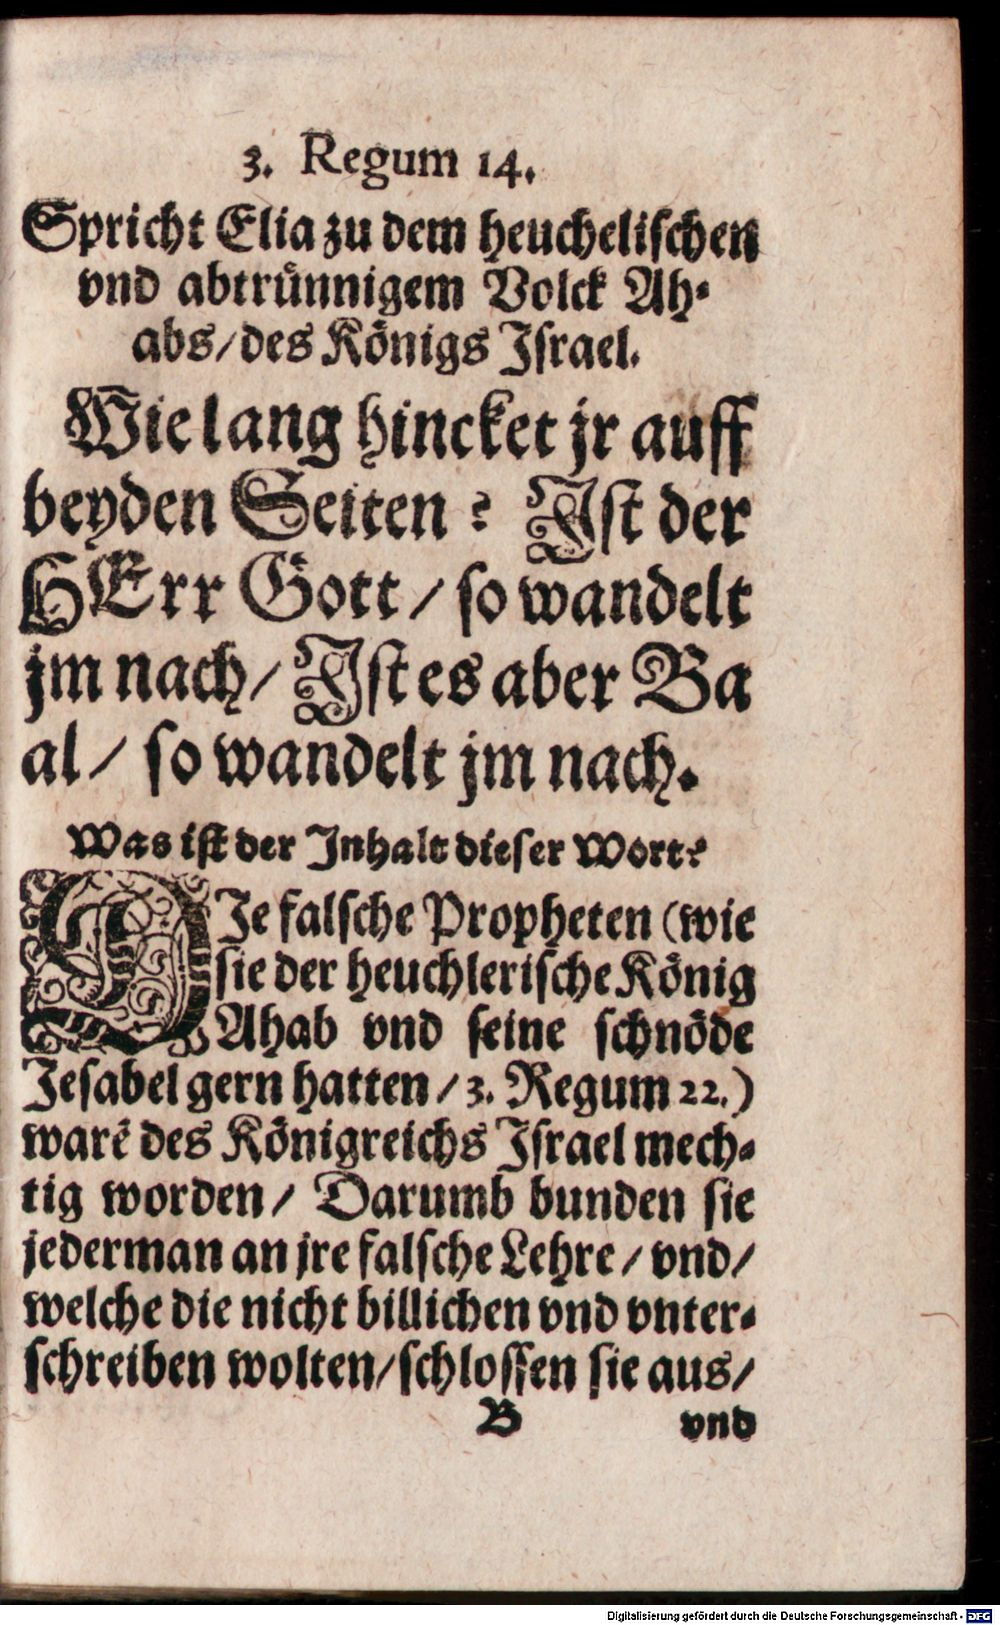 3. Regum 14.
Spricht Elia zu dem heuchelischen
vnd abtrünnigem Volck Ah⸗
abs/des Königs Jsrael.
Wie lang hincket jr auff
beyden Seiten? Jst der
HErr Gott/ so wandelt
jm nach/ Jst es aber Ba
al/ so wandelt jm nach.
Was ist der Jnhalt dieser Wort?
DJe falsche Propheten (wie
sie der heuchlerische König
Ahab vnd seine schnöde
Jesabel gern hatten/3. Regum 22.)
warẽ des Königreichs Jsrael mech⸗
tig worden/ Darumb bunden sie
jederman an jre falsche Lehre/ vnd/
welche die nicht billichen vnd vnter⸗
schreiben wolten/schlossen sie aus/
B vnd
Digitalisierung gefördert durch die Deutsche Forschungsgemeinschaft - DFG